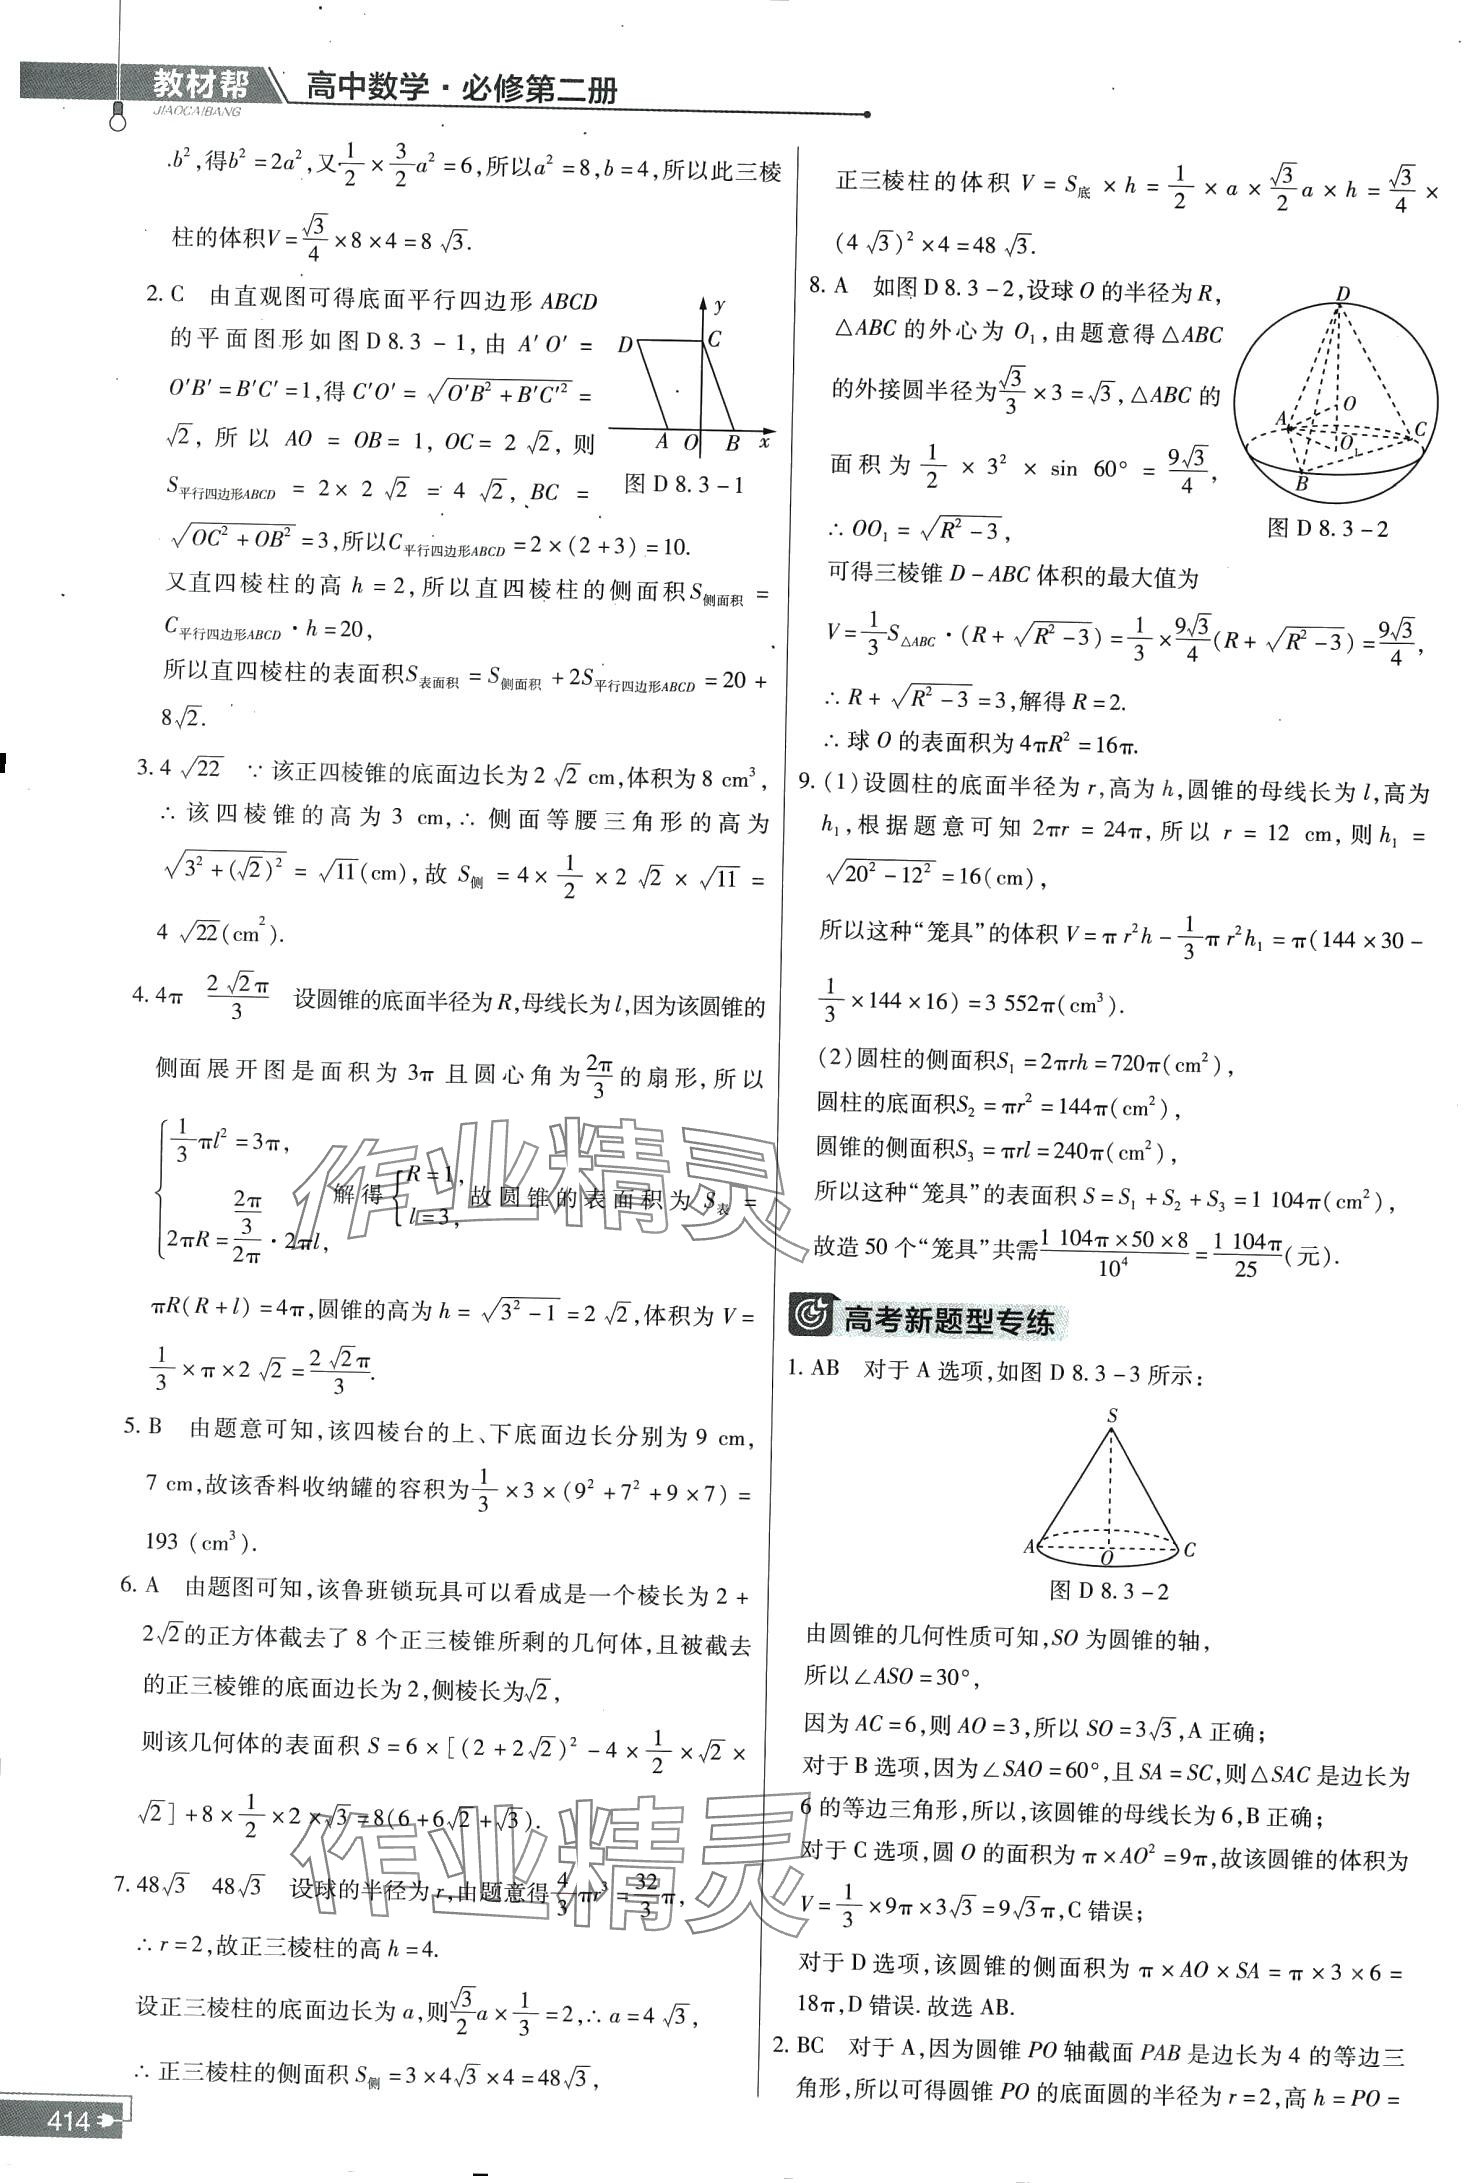 教材帮
JIAOCAIBANG
高中数学·必修第二册
b²,得b²=2a²,又1/2×3/2a²=6,所以a²=8,b=4,所以此三棱
柱的体积V=√3/4×8×4=8√3.
2. C 由直观图可得底面平行四边形ABCD
的平面图形如图D8.3-1,由A′O′=
O′B′=B′C′=1,得C′O′=√(O′B′²+B′C′²)=
√2,所以AO=OB=1,OC=2√2,则
S平行四边形ABCD=2×2√2=4√2,BC=
√(OC²+OB²)=3,所以C平行四边形ABCD=2×(2+3)=10.
又直四棱柱的高h=2,所以直四棱柱的侧面积S侧面积=
C平行四边形ABCD·h=20,
所以直四棱柱的表面积S表面积=S侧面积+2S平行四边形ABCD=20+
8√2.
y
D C
A O B x
图D8.3-1
3. 4√22 ∵该正四棱锥的底面边长为2√2 cm,体积为8 cm³,
∴该四棱锥的高为3 cm,∴侧面等腰三角形的高为
√(3²+(√2)²)=√11(cm),故S侧=4×1/2×2√2×√11=
4√22(cm²).
4. 4π 2√2π/3 设圆锥的底面半径为R,母线长为l,因为该圆锥的
侧面展开图是面积为3π且圆心角为2π/3的扇形,所以
{1/3πl²=3π,
2πR=(2π/3)/2π·2πl,
解得{R=1,
l=3,
故圆锥的表面积为S表=
πR(R+l)=4π,圆锥的高为h=√(3²-1)=2√2,体积为V=
1/3×π×2√2=2√2π/3.
5. B 由题意可知,该四棱台的上、下底面边长分别为9 cm,
7 cm,故该香料收纳罐的容积为1/3×3×(9²+7²+9×7)=
193 (cm³).
6. A 由题图可知,该鲁班锁玩具可以看成是一个棱长为2+
2√2的正方体截去了8个正三棱锥所剩的几何体,且被截去
的正三棱锥的底面边长为2,侧棱长为√2,
则该几何体的表面积S=6×[(2+2√2)²-4×1/2×√2×
√2]+8×1/2×2×√3=8(6+6√2+√3).
7. 48√3 48√3 设球的半径为r,由题意得4/3πr³=32/3π,
∴r=2,故正三棱柱的高h=4.
设正三棱柱的底面边长为a,则√3/2a×1/3=2,∴a=4√3,
∴正三棱柱的侧面积S侧=3×4√3×4=48√3,
414
正三棱柱的体积V=S底×h=1/2×a×√3/2a×h=√3/4×
(4√3)²×4=48√3.
8. A 如图D8.3-2,设球O的半径为R,
△ABC的外心为O₁,由题意得△ABC
的外接圆半径为√3/3×3=√3,△ABC的
面积为1/2×3²×sin 60°=9√3/4,
∴OO₁=√(R²-3),
D
O
A C
O₁
B
图D8.3-2
可得三棱锥D-ABC体积的最大值为
V=1/3S△ABC·(R+√(R²-3))=1/3×9√3/4(R+√(R²-3))=9√3/4,
∴R+√(R²-3)=3,解得R=2.
∴球O的表面积为4πR²=16π.
9. (1)设圆柱的底面半径为r,高为h,圆锥的母线长为l,高为
h₁,根据题意可知2πr=24π,所以r=12 cm,则h₁=
√(20²-12²)=16(cm),
所以这种“笼具”的体积V=πr²h-1/3πr²h₁=π(144×30-
1/3×144×16)=3 552π(cm³).
(2)圆柱的侧面积S₁=2πrh=720π(cm²),
圆柱的底面积S₂=πr²=144π(cm²),
圆锥的侧面积S₃=πrl=240π(cm²),
所以这种“笼具”的表面积S=S₁+S₂+S₃=1 104π(cm²),
故造50个“笼具”共需1 104π×50×8/10⁴=1 104π/25(元).
高考新题型专练
1. AB 对于A选项,如图D8.3-3所示:
S
A O C
图D8.3-2
由圆锥的几何性质可知,SO为圆锥的轴,
所以∠ASO=30°,
因为AC=6,则AO=3,所以SO=3√3,A正确;
对于B选项,因为∠SAO=60°,且SA=SC,则△SAC是边长为
6的等边三角形,所以,该圆锥的母线长为6,B正确;
对于C选项,圆O的面积为π×AO²=9π,故该圆锥的体积为
V=1/3×9π×3√3=9√3π,C错误;
对于D选项,该圆锥的侧面积为π×AO×SA=π×3×6=
18π,D错误.故选AB.
2. BC 对于A,因为圆锥PO轴截面PAB是边长为4的等边三
角形,所以可得圆锥PO的底面圆的半径为r=2,高h=PO=
作业精灵
作业精灵